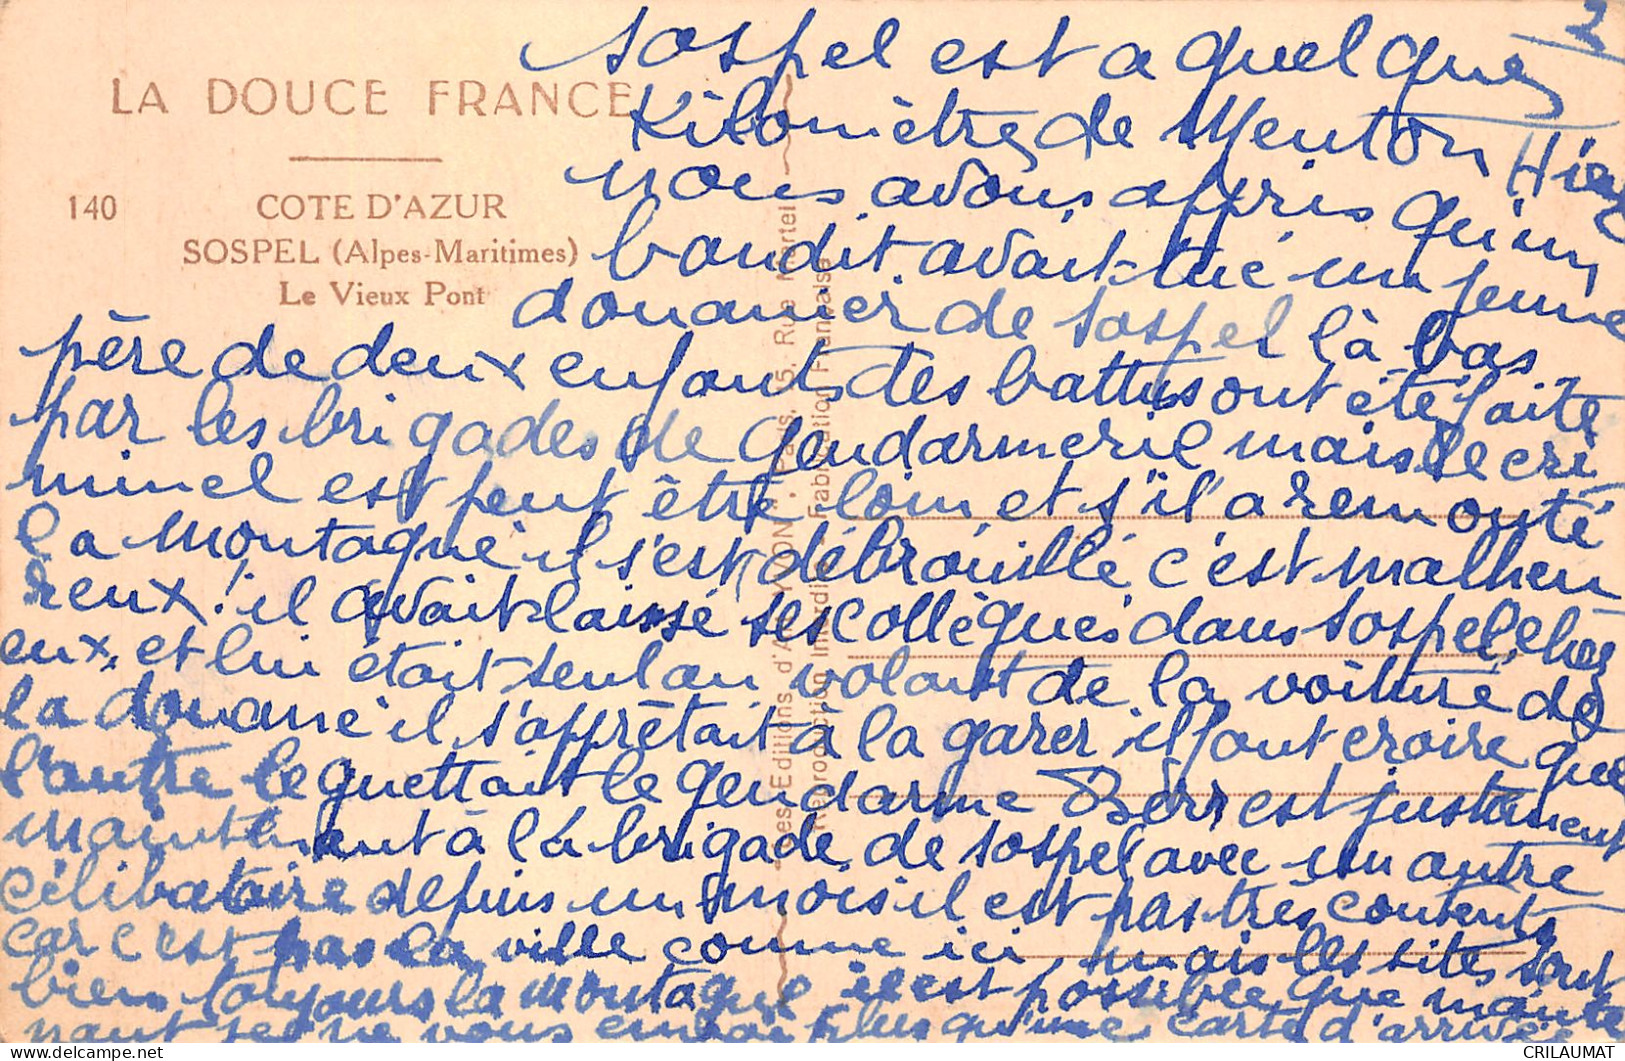 2
LA DOUCE FRANCE
140
COTE D'AZUR
SOSPEL (Alpes-Maritimes)
Le Vieux Pont
Sospel est a quelques
Kilomètres de Menton Hier
nous avons appris qu'un
bandit avait tué un jeune
douanier de Sospel là bas
père de deux enfants des battus ont été faite
par les brigades de gendarmerie mais le cri
minel est peut être loin et s'il a remonté
la montagne il s'est débrouillé c'est malheu
reux! il avait laissé ses collègues dans Sospel, chez
eux, et lui était seul au volant de la voiture de
la douane il s'apprêtait à la garer, il faut croire que
l'autre le guettait le gendarme Bérr est justement
maintenant à la brigade de Sospel avec un autre
célibataire depuis un mois il est pas très contents
car c'est pas la ville comme ici, mais les sites sont
bien toujours la montagne il est possible que mainte
nant je ne vous plus qu'une carte d'arrivée
Les Editions d'Art YVON", Paris, 15, Rue Martel
Reproduction Interdite Fabrication Française
CRILAUMAT